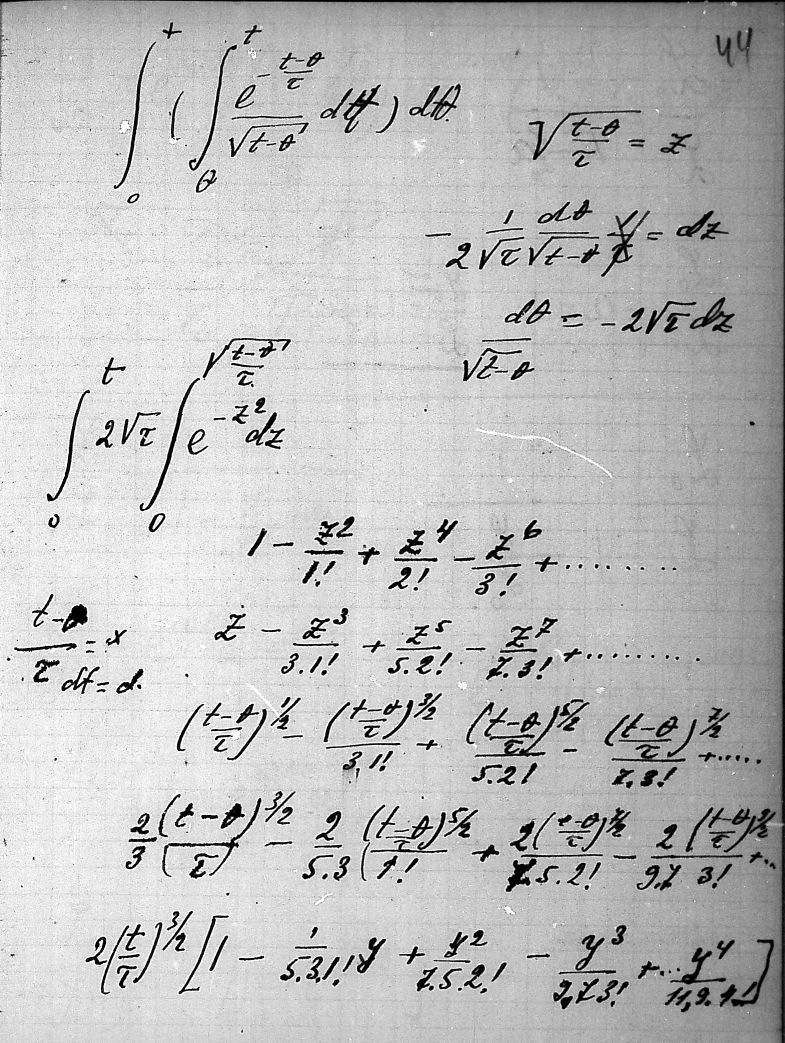 44
∫₀ᵗ ( ∫_θ^t e^{-(t-θ)/τ} / √(t-θ) dt ) dθ
√((t-θ)/τ) = z
- 1/(2√τ) dθ/√(t-θ) = dz
dθ/√(t-θ) = -2√τ dz
∫₀ᵗ 2√τ ∫₀^{√((t-θ)/τ)} e^{-z²} dz
1 - z²/1! + z⁴/2! - z⁶/3! + ........
(t-θ)/τ = x
z - z³/3.1! + z⁵/5.2! - z⁷/7.3! + ........
dt = d.
((t-θ)/τ)^{1/2} - ((t-θ)/τ)^{3/2}/3.1! + ((t-θ)/τ)^{5/2}/5.2! - ((t-θ)/τ)^{7/2}/7.3! + .....
2/3 ((t-θ)/τ)^{3/2} - 2/5.3 ((t-θ)/τ)^{5/2}/1! + 2((t-θ)/τ)^{7/2}/7.5.2! - 2((t-θ)/τ)^{9/2}/9.7 3! + ..
2(t/τ)^{3/2} [1 - 1/5.3.1! y + y²/7.5.2! - y³/9.7.3! + ... y⁴/11.9.4!]